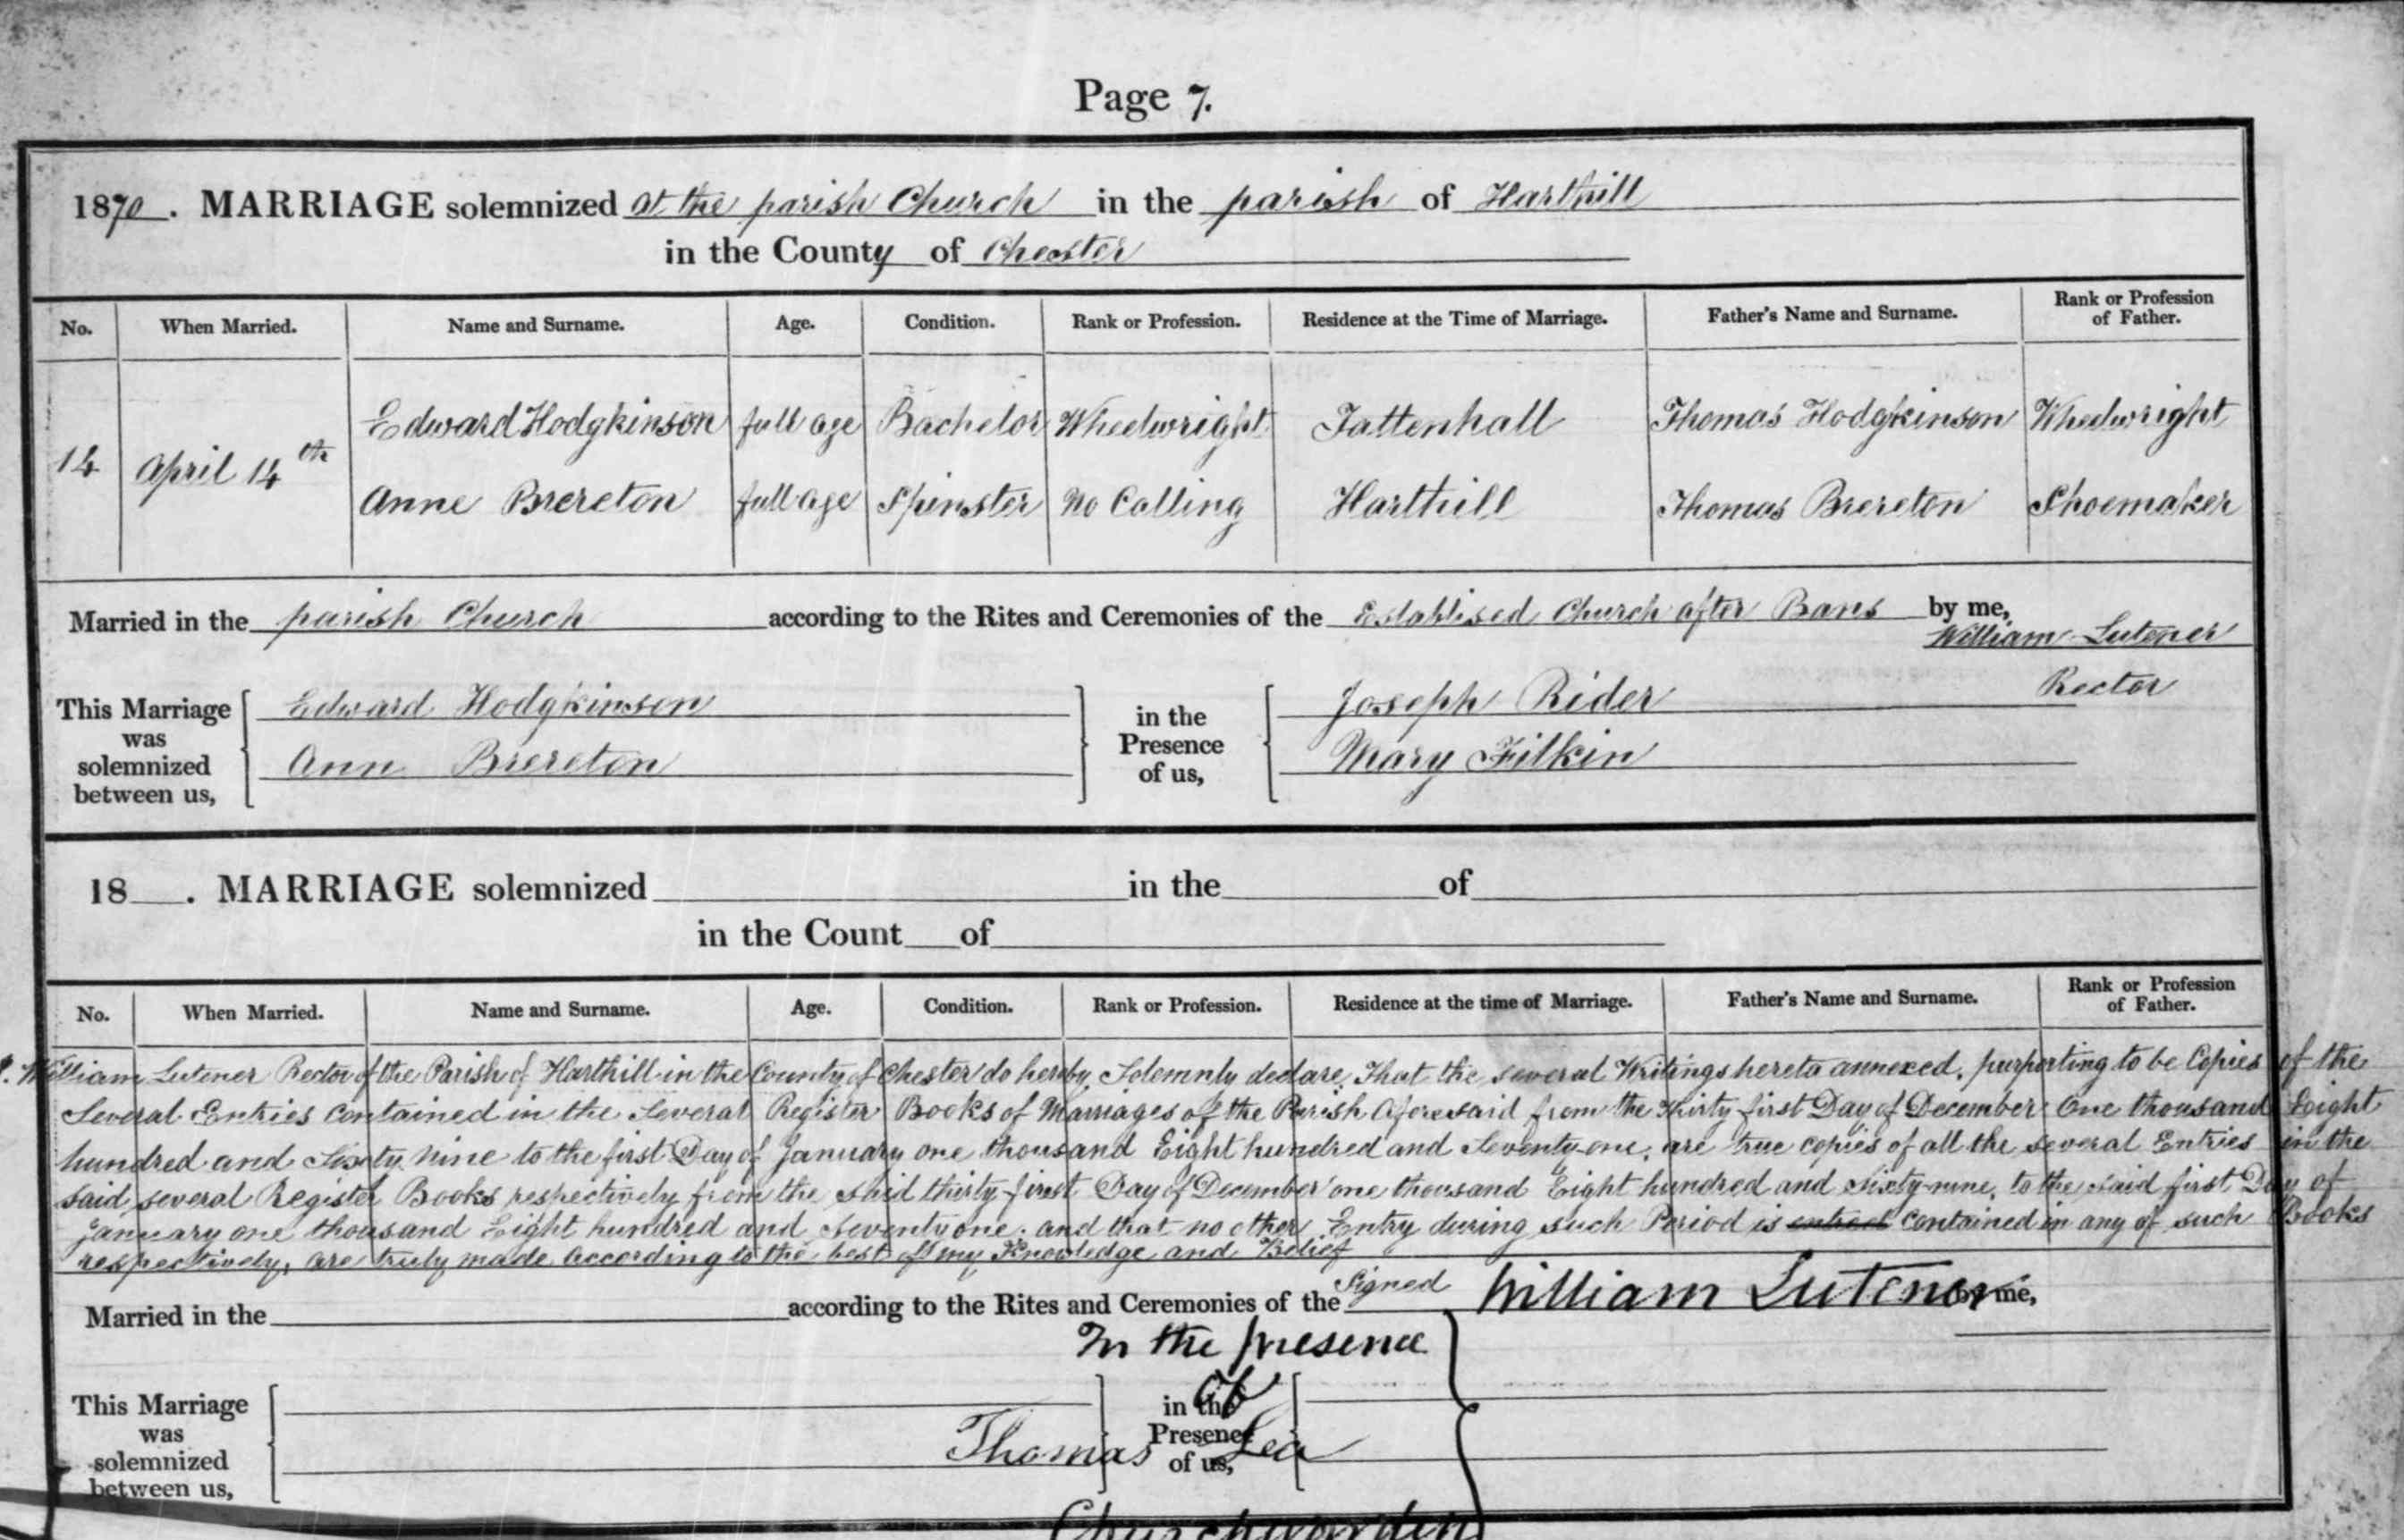 Page 7.
1870. MARRIAGE solemnized at the parish Church in the parish of Harthill
in the County of Chester
No. When Married. Name and Surname. Age. Condition. Rank or Profession. Residence at the Time of Marriage. Father's Name and Surname. Rank or Profession of Father.
14 April 14th
Edward Hodgkinson full age Bachelor Wheelwright Tattenhall Thomas Hodgkinson Wheelwright
Anne Brereton full age Spinster No Calling Harthill Thomas Brereton Shoemaker
Married in the parish Church according to the Rites and Ceremonies of the Establised Church after Bans by me,
William Lutener
Rector
This Marriage was solemnized between us,
Edward Hodgkinson
Ann Brereton
in the Presence of us,
Joseph Rider
Mary Filkin
18 . MARRIAGE solemnized in the of
in the Count of
No. When Married. Name and Surname. Age. Condition. Rank or Profession. Residence at the time of Marriage. Father's Name and Surname. Rank or Profession of Father.
I. William Lutener Rector of the Parish of Harthill in the County of Chester do hereby Solemnly declare, That the several Writings hereto annexed, purporting to be Copies of the
Several Entries contained in the Several Register Books of Marriages of the Parish Aforesaid from the thirty first Day of December One thousand Eight
hundred and Sixty nine to the first Day of January one thousand Eight hundred and Seventy-one, are true copies of all the several Entries in the
said several Register Books respectively from the said thirty first Day of December one thousand Eight hundred and Sixty-nine, to the said first Day of
January one thousand Eight hundred and Seventy one. and that no other Entry during such Period is contained in any of such Books
respectively, are truly made according to the best of my Knowledge and Belief
Married in the according to the Rites and Ceremonies of the Signed William Lutener by me,
In the presence
of
Thomas Lea
Churchwarden
This Marriage was solemnized between us,
in the Presence of us,